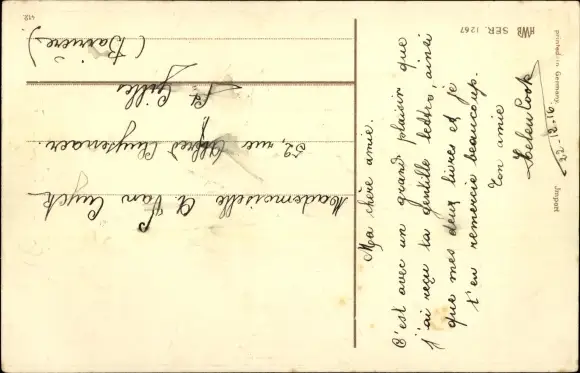 Ma chère amie.
C'est avec un grand plaisir que
j'ai reçu ta gentille lettre, ainsi
que mes deux livres et je
t'en remercie beaucoup.
Ton amie
Helen Cook
22-12-16.
Mademoiselle A. Van Cuyck
52, rue Alfred Cluysenaer.
St Gilles
(Barrière)
HWB SER. 1267
printed in Germany.
Import